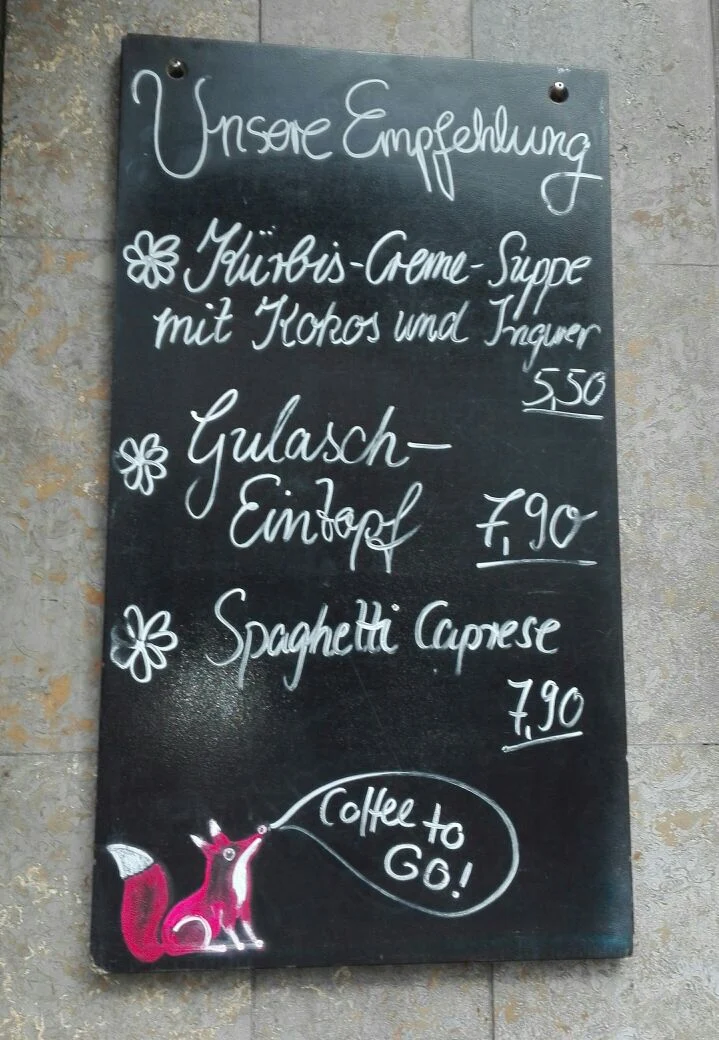 Unsere Empfehlung
Kürbis-Creme-Suppe
mit Kokos und Ingwer
5,50
Gulasch-
Eintopf 7,90
Spaghetti Caprese
7,90
Coffee to
GO!